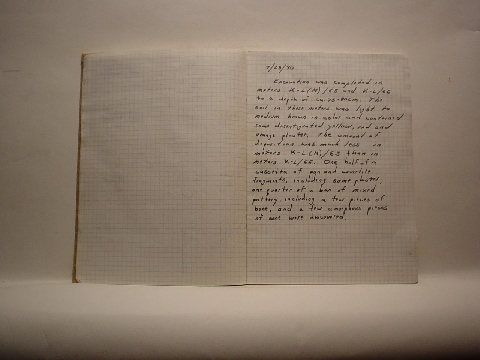 7/23/90
Excavation was completed in
meters K-L(N)/55 and K-L/56
to a depth of ca. 70-80cm. The
soil in these meters was light to
medium brown in color and contained
some disintegrated yellow, red and
orange plaster. The amount of
depositions was much less in
meters K-L(N)/55 than in
meters K-L/56. One half of a
cassetta of pan and covertile
fragments, including some plaster,
one quarter of a box of mixed
pottery, including a few pieces of
bone, and a few amorphous pieces
of were discovered.